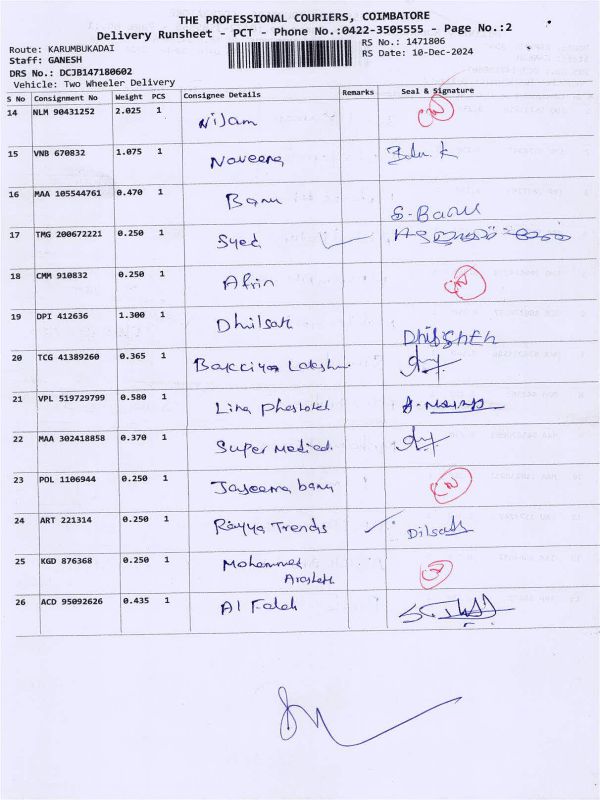 THE PROFESSIONAL COURIERS, COIMBATORE
Delivery Runsheet - PCT - Phone No.:0422-3505555 - Page No.:2
Route: KARUMBUKADAI
RS No.: 1471806
Staff: GANESH
RS Date: 10-Dec-2024
DRS No.: DCJB147180602
Vehicle: Two Wheeler Delivery
S No Consignment No Weight PCS Consignee Details Remarks Seal & Signature
14 NLM 90431252 2.025 1 Nijam CN
15 VNB 670832 1.075 1 Naveena
16 MAA 105544761 0.470 1 Banu S. Banu
17 TMG 200672221 0.250 1 Syed
18 CMM 910832 0.250 1 Afrin CN
19 DPI 412636 1.300 1 Dhilsath
20 TCG 41389260 0.365 1 Bakkiya Lakshmi
21 VPL 519729799 0.580 1 Lina
22 MAA 302418858 0.370 1 Super Medical
23 POL 1106944 0.250 1 Jaseema banu CN
24 ART 221314 0.250 1 Rayya Trends Dilsath
25 KGD 876368 0.250 1 Mohammed
26 ACD 95092626 0.435 1 Al Falah